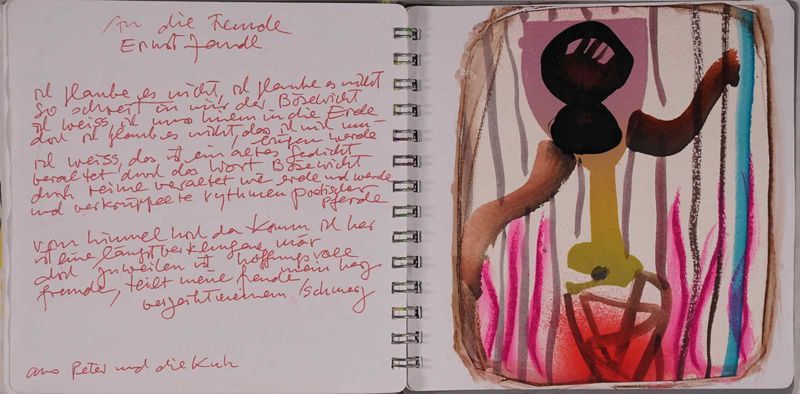 An die Freunde
Ernst Jandl
ich glaube es nicht, ich glaube es nicht
So schreit in mir der Bösewicht
ich weiss, ich muss hinein in die Erde
doch ich glaub es nicht, das ich mit
werde
ich weiss, das ist ein altes Gedicht
veraltet durch das Wort Bösewicht
durch reime veraltet wie erde und werde
und verkrüppelte rythmen poetischer
pferde
vom himmel hoch da komm ich her
ist eine längst verklungene mär
doch zuweilen ist hoffnungsvoll
mein herz
freunde, teilt meine freude
verzeiht meinem schmerz
aus Peter und die Kuh